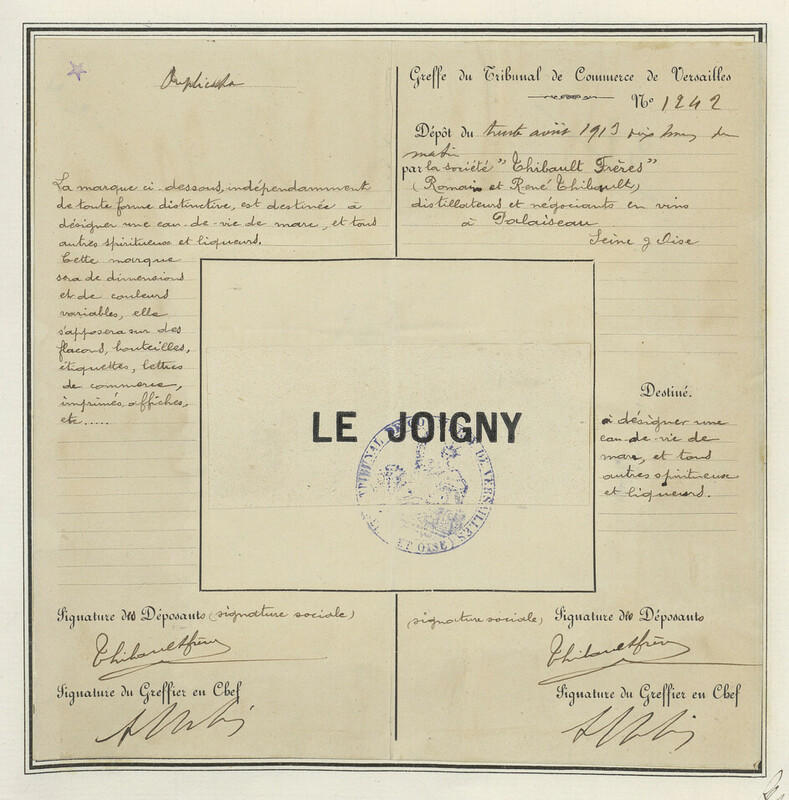 Duplicata
La marque ci-dessous, indépendamment
de toute forme distinctive, est destinée à
désigner une eau-de-vie de marc, et tous
autres spiritueux et liqueurs.
Cette marque
sera de dimensions
et de couleurs
variables, elle
s'apposera sur des
flacons, bouteilles,
étiquettes, lettres
de commerce,
imprimés, affiches,
etc.....
Greffe du Tribunal de Commerce de Versailles
No 1242
Dépôt du trente août 1913 dix heures du
matin
par la société "Thibault Frères"
(Romain et René Thibault)
distillateurs et négociants en vins
à Palaiseau
Seine & Oise
LE JOIGNY
TRIBUNAL DE COMMERCE DE VERSAILLES
ET OISE
Destiné.
à désigner une
eau-de-vie de
marc, et tous
autres spiritueux
et liqueurs.
Signature des Déposants (signature sociale)
Thibault frères
Signature du Greffier en Chef
(signature sociale) Signature des Déposants
Thibault frères
Signature du Greffier en Chef